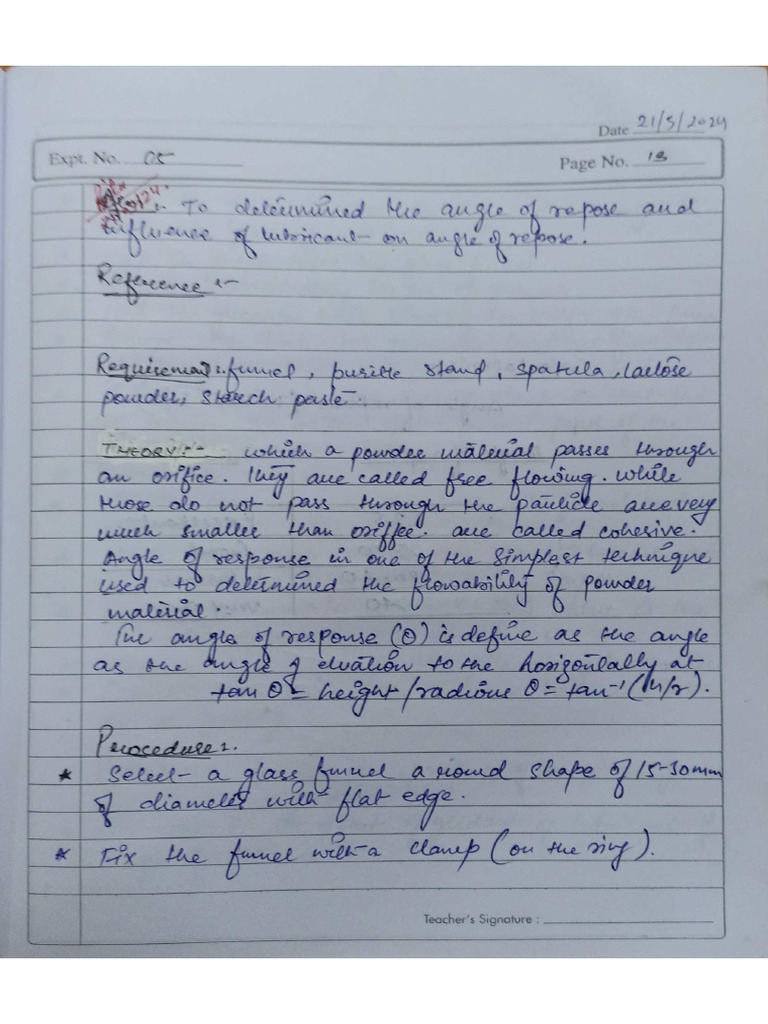 Date 21/5/2024
Expt. No. 05
Page No. 13
:- To determined the angle of repose and
influence of lubricant on angle of repose.
Reference :-
Requirement :- funnel, stand, spatula, lactose
powder, starch paste.
THEORY :- which a powder material passes through
an orifice. They are called free flowing. While
those do not pass through the particle are very
much smaller than oriffee. are called cohesive.
Angle of response in one of the simplest technique
used to determined the flowability of powder
material.
The angle of response (θ) is define as the angle
as the angle of elvation to the horizontally at
tan θ = height / radious θ = tan⁻¹ (h/r).
Procedure :.
* Select a glass funnel a round shape of 15-30mm
of diameter with flat edge.
* Fix the funnel with a clamp (on the ring).
Teacher's Signature :